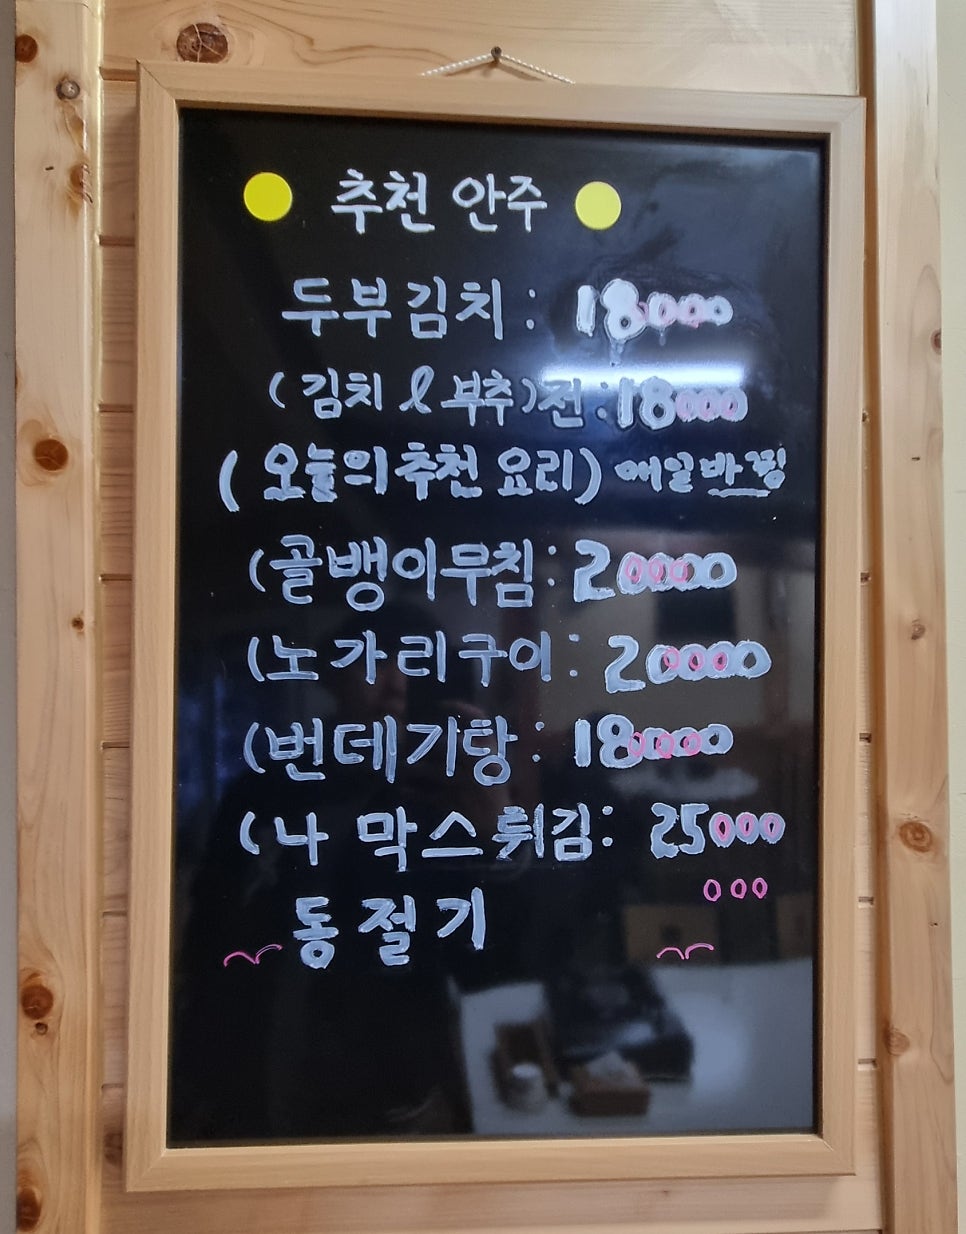 추천 안주
두부김치 : 18000
(김치 & 부추)전 : 18000
(오늘의 추천 요리) 매일바뀜
(골뱅이무침 : 20000
(노가리구이 : 20000
(번데기탕 : 18000
(나 막스튀김 : 25000
000
동절기